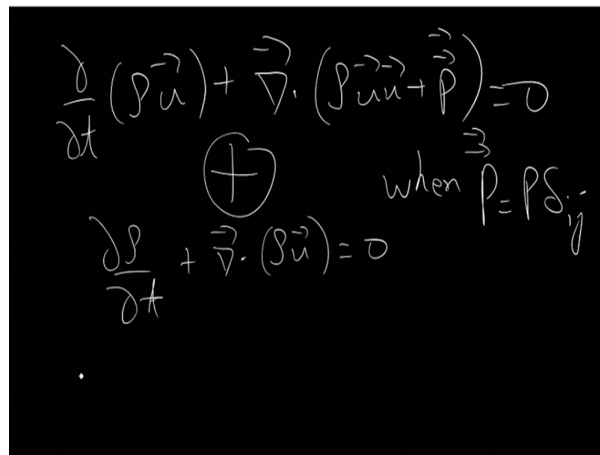 ∂/∂t (ρu⃗) + ∇⃗·(ρu⃗u⃗ + P⃗⃗) = 0
⊕ when P⃗⃗ = Pδᵢⱼ
∂ρ/∂t + ∇⃗·(ρu⃗) = 0